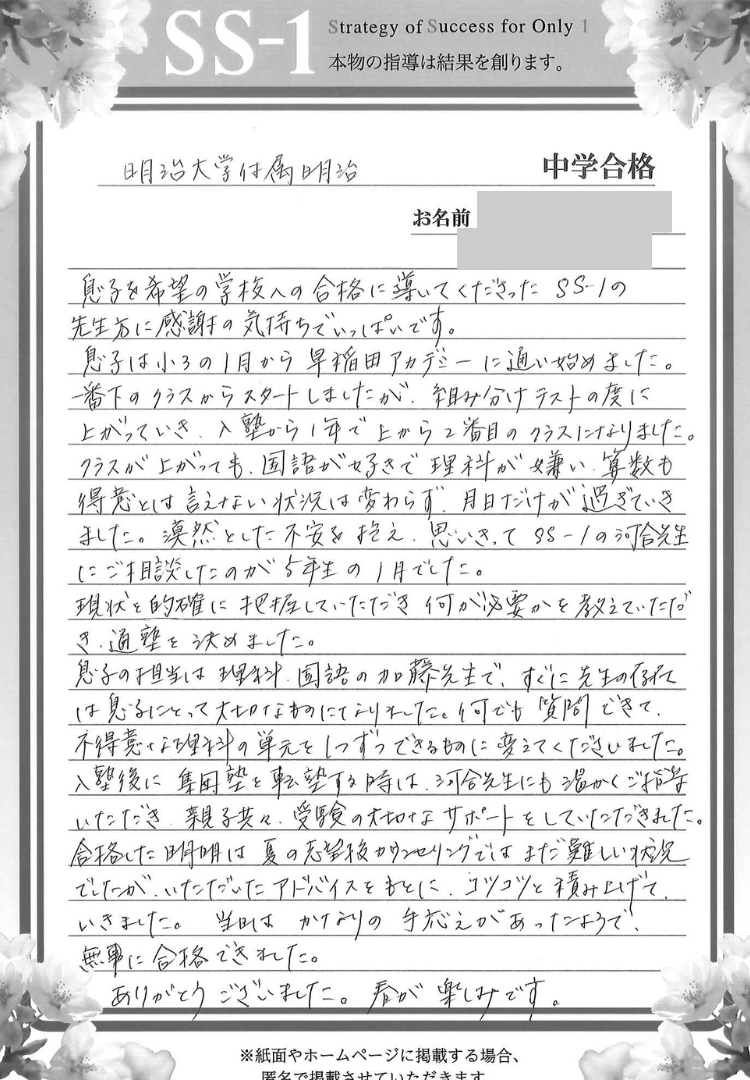 SS-1
Strategy of Success for Only 1
本物の指導は結果を創ります。
明治大学付属明治 中学合格
お名前
息子を希望の学校への合格に導いてくださった SS-1の
先生方に感謝の気持ちでいっぱいです。
息子は小3の1月から早稲田アカデミーに通い始めました。
一番下のクラスからスタートしましたが、組み分けテストの度に
上がっていき、入塾から1年で上から2番目のクラスになりました。
クラスが上がっても、国語が好きで理科が嫌い、算数も
得意とは言えない状況は変わらず、月日だけが過ぎていき
ました。漠然とした不安を抱え、思いきって SS-1の河合先生
にご相談したのが5年生の1月でした。
現状を的確に把握していただき何が必要かを教えていただ
き、通塾を決めました。
息子の担当は理科、国語の加藤先生で、すぐに先生の存在
は息子にとって大切なものになりました。何でも質問できて、
不得意な理科の単元を1つずつできるものに変えてくださいました。
入塾後に集団塾を転塾する時は、河合先生にも温かくご指導
いただき、親子共々、受験の大切なサポートをしていただきました。
合格した明明は夏の志望校カウンセリングではまだ難しい状況
でしたが、いただいたアドバイスをもとに、コツコツと積み上げて
いきました。当日はかなりの手応えがあったようで、
無事に合格できました。
ありがとうございました。春が楽しみです。
※紙面やホームページに掲載する場合、
匿名で掲載させていただきます。